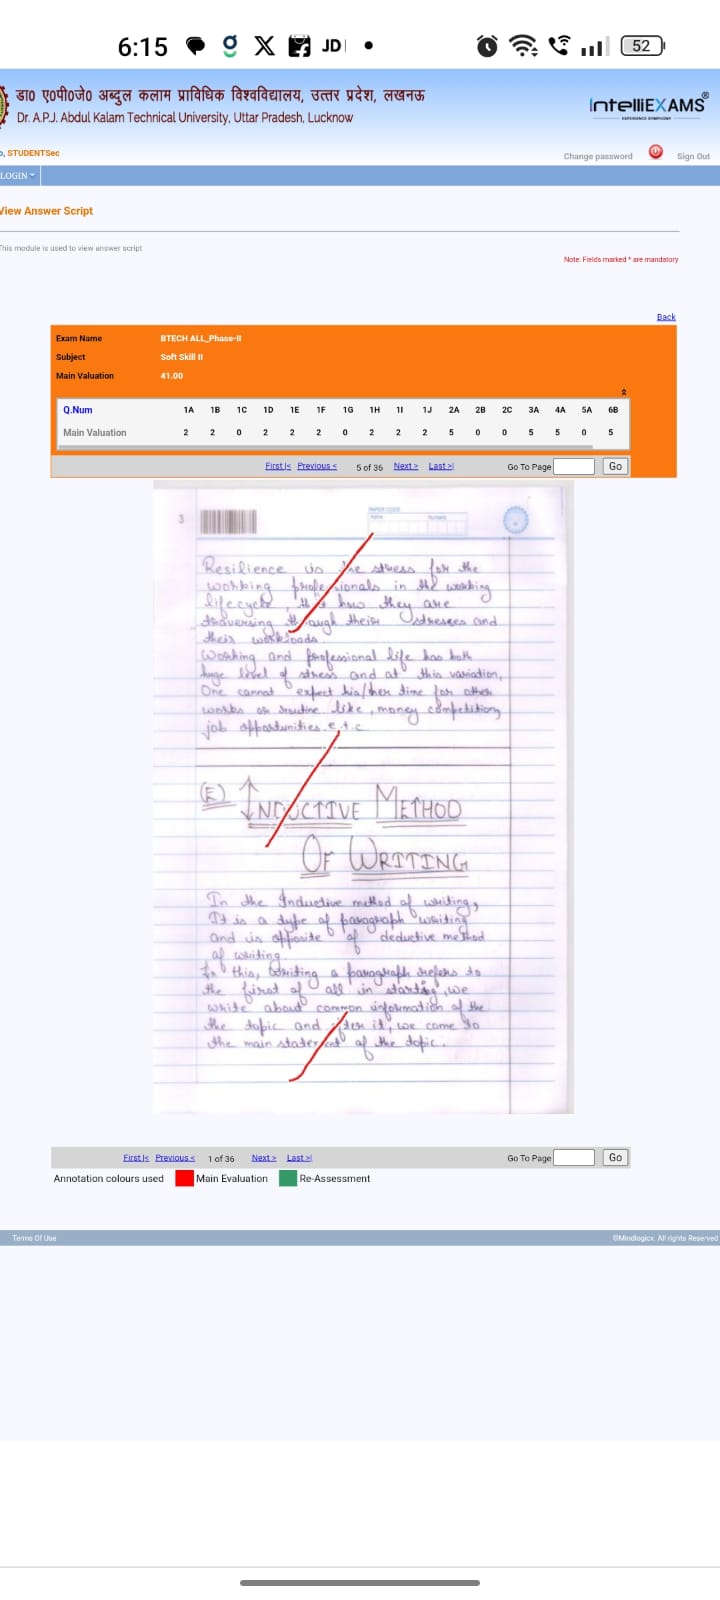 6:15
JD
52
डा0 ए०पी०जे० अब्दुल कलाम प्राविधिक विश्वविद्यालय, उत्तर प्रदेश, लखनऊ
Dr. A.P.J. Abdul Kalam Technical University, Uttar Pradesh, Lucknow
IntelliEXAMS®
o, STUDENTSec
Change password
Sign Out
LOGIN
View Answer Script
This module is used to view answer script
Note: Fields marked * are mandatory
Back
Exam Name BTECH ALL_Phase-II
Subject Soft Skill II
Main Valuation 41.00
Q.Num 1A 1B 1C 1D 1E 1F 1G 1H 1I 1J 2A 2B 2C 3A 4A 5A 6B
Main Valuation 2 2 0 2 2 2 0 2 2 2 5 0 0 5 5 0 5
First|< Previous < 5 of 36 Next > Last >| Go To Page Go
3
PAPER CODE
Resilience is the stress for the
working professionals in the working
lifecycle, how they are
traversing through their stresses and
their workloads.
Working and professional life has both
huge level of stress and at this variation,
One cannot expect his/her time for other
works or routine like, money competition,
job opportunities e.t.c
(E) INDUCTIVE METHOD
OF WRITING
In the Inductive method of writing,
It is a type of paragraph writing
and is opposite of deductive method
of writing.
In this, writing a paragraph refers to
the first of all in starting, we
write about common information of the
the topic and after it, we come to
the main statement of the topic.
First|< Previous < 1 of 36 Next > Last >| Go To Page Go
Annotation colours used Main Evaluation Re-Assessment
Terms Of Use
©Mindlogicx. All rights Reserved